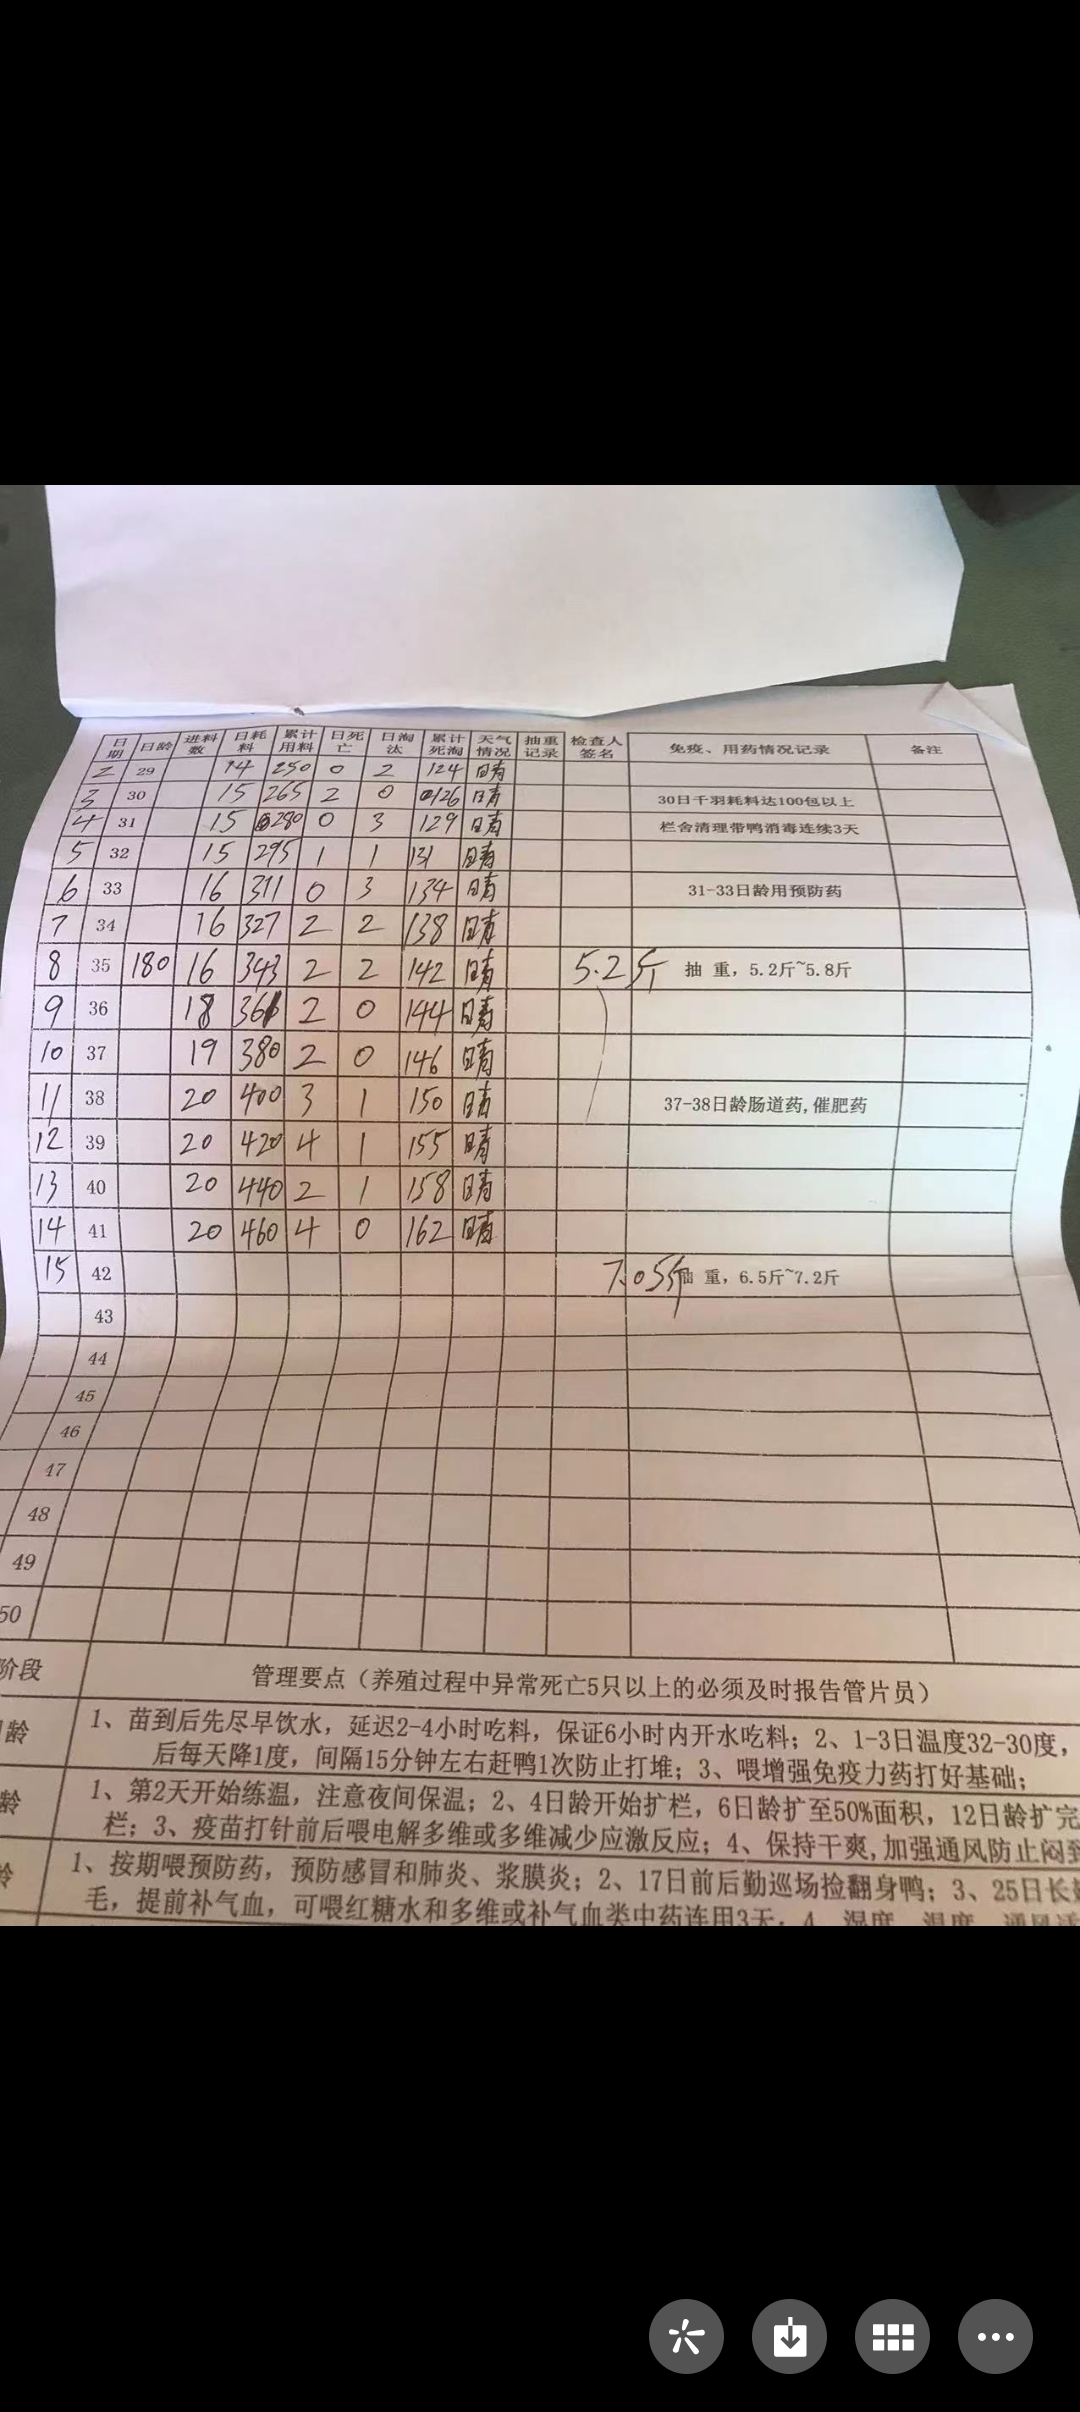 日期 日龄 进料数 日耗料 累计用料 日死亡 日淘汰 累计死淘 天气情况 抽重记录 检查人签名 免疫、用药情况记录 备注
2 29 14 250 0 2 124 晴
3 30 15 265 2 0 126 晴 30日千羽耗料达100包以上
4 31 15 280 0 3 129 晴 栏舍清理带鸭消毒连续3天
5 32 15 295 1 1 131 晴
6 33 16 311 0 3 134 晴 31-33日龄用预防药
7 34 16 327 2 2 138 晴
8 35 180 16 343 2 2 142 晴 5.2斤 抽 重，5.2斤~5.8斤
9 36 18 361 2 0 144 晴
10 37 19 380 2 0 146 晴
11 38 20 400 3 1 150 晴 37-38日龄肠道药,催肥药
12 39 20 420 4 1 155 晴
13 40 20 440 2 1 158 晴
14 41 20 460 4 0 162 晴
15 42 7.05斤 抽 重，6.5斤~7.2斤
43
44
45
46
47
48
49
50
阶段 管理要点（养殖过程中异常死亡5只以上的必须及时报告管片员）
龄 1、苗到后先尽早饮水，延迟2-4小时吃料，保证6小时内开水吃料；2、1-3日温度32-30度，
后每天降1度，间隔15分钟左右赶鸭1次防止打堆；3、喂增强免疫力药打好基础；
龄 1、第2天开始练温，注意夜间保温；2、4日龄开始扩栏，6日龄扩至50%面积，12日龄扩完
栏；3、疫苗打针前后喂电解多维或多维减少应激反应；4、保持干爽,加强通风防止闷到
龄 1、按期喂预防药，预防感冒和肺炎、浆膜炎；2、17日前后勤巡场捡翻身鸭；3、25日长
毛，提前补气血，可喂红糖水和多维或补气血类中药连用3天，4、湿度、温度、通风